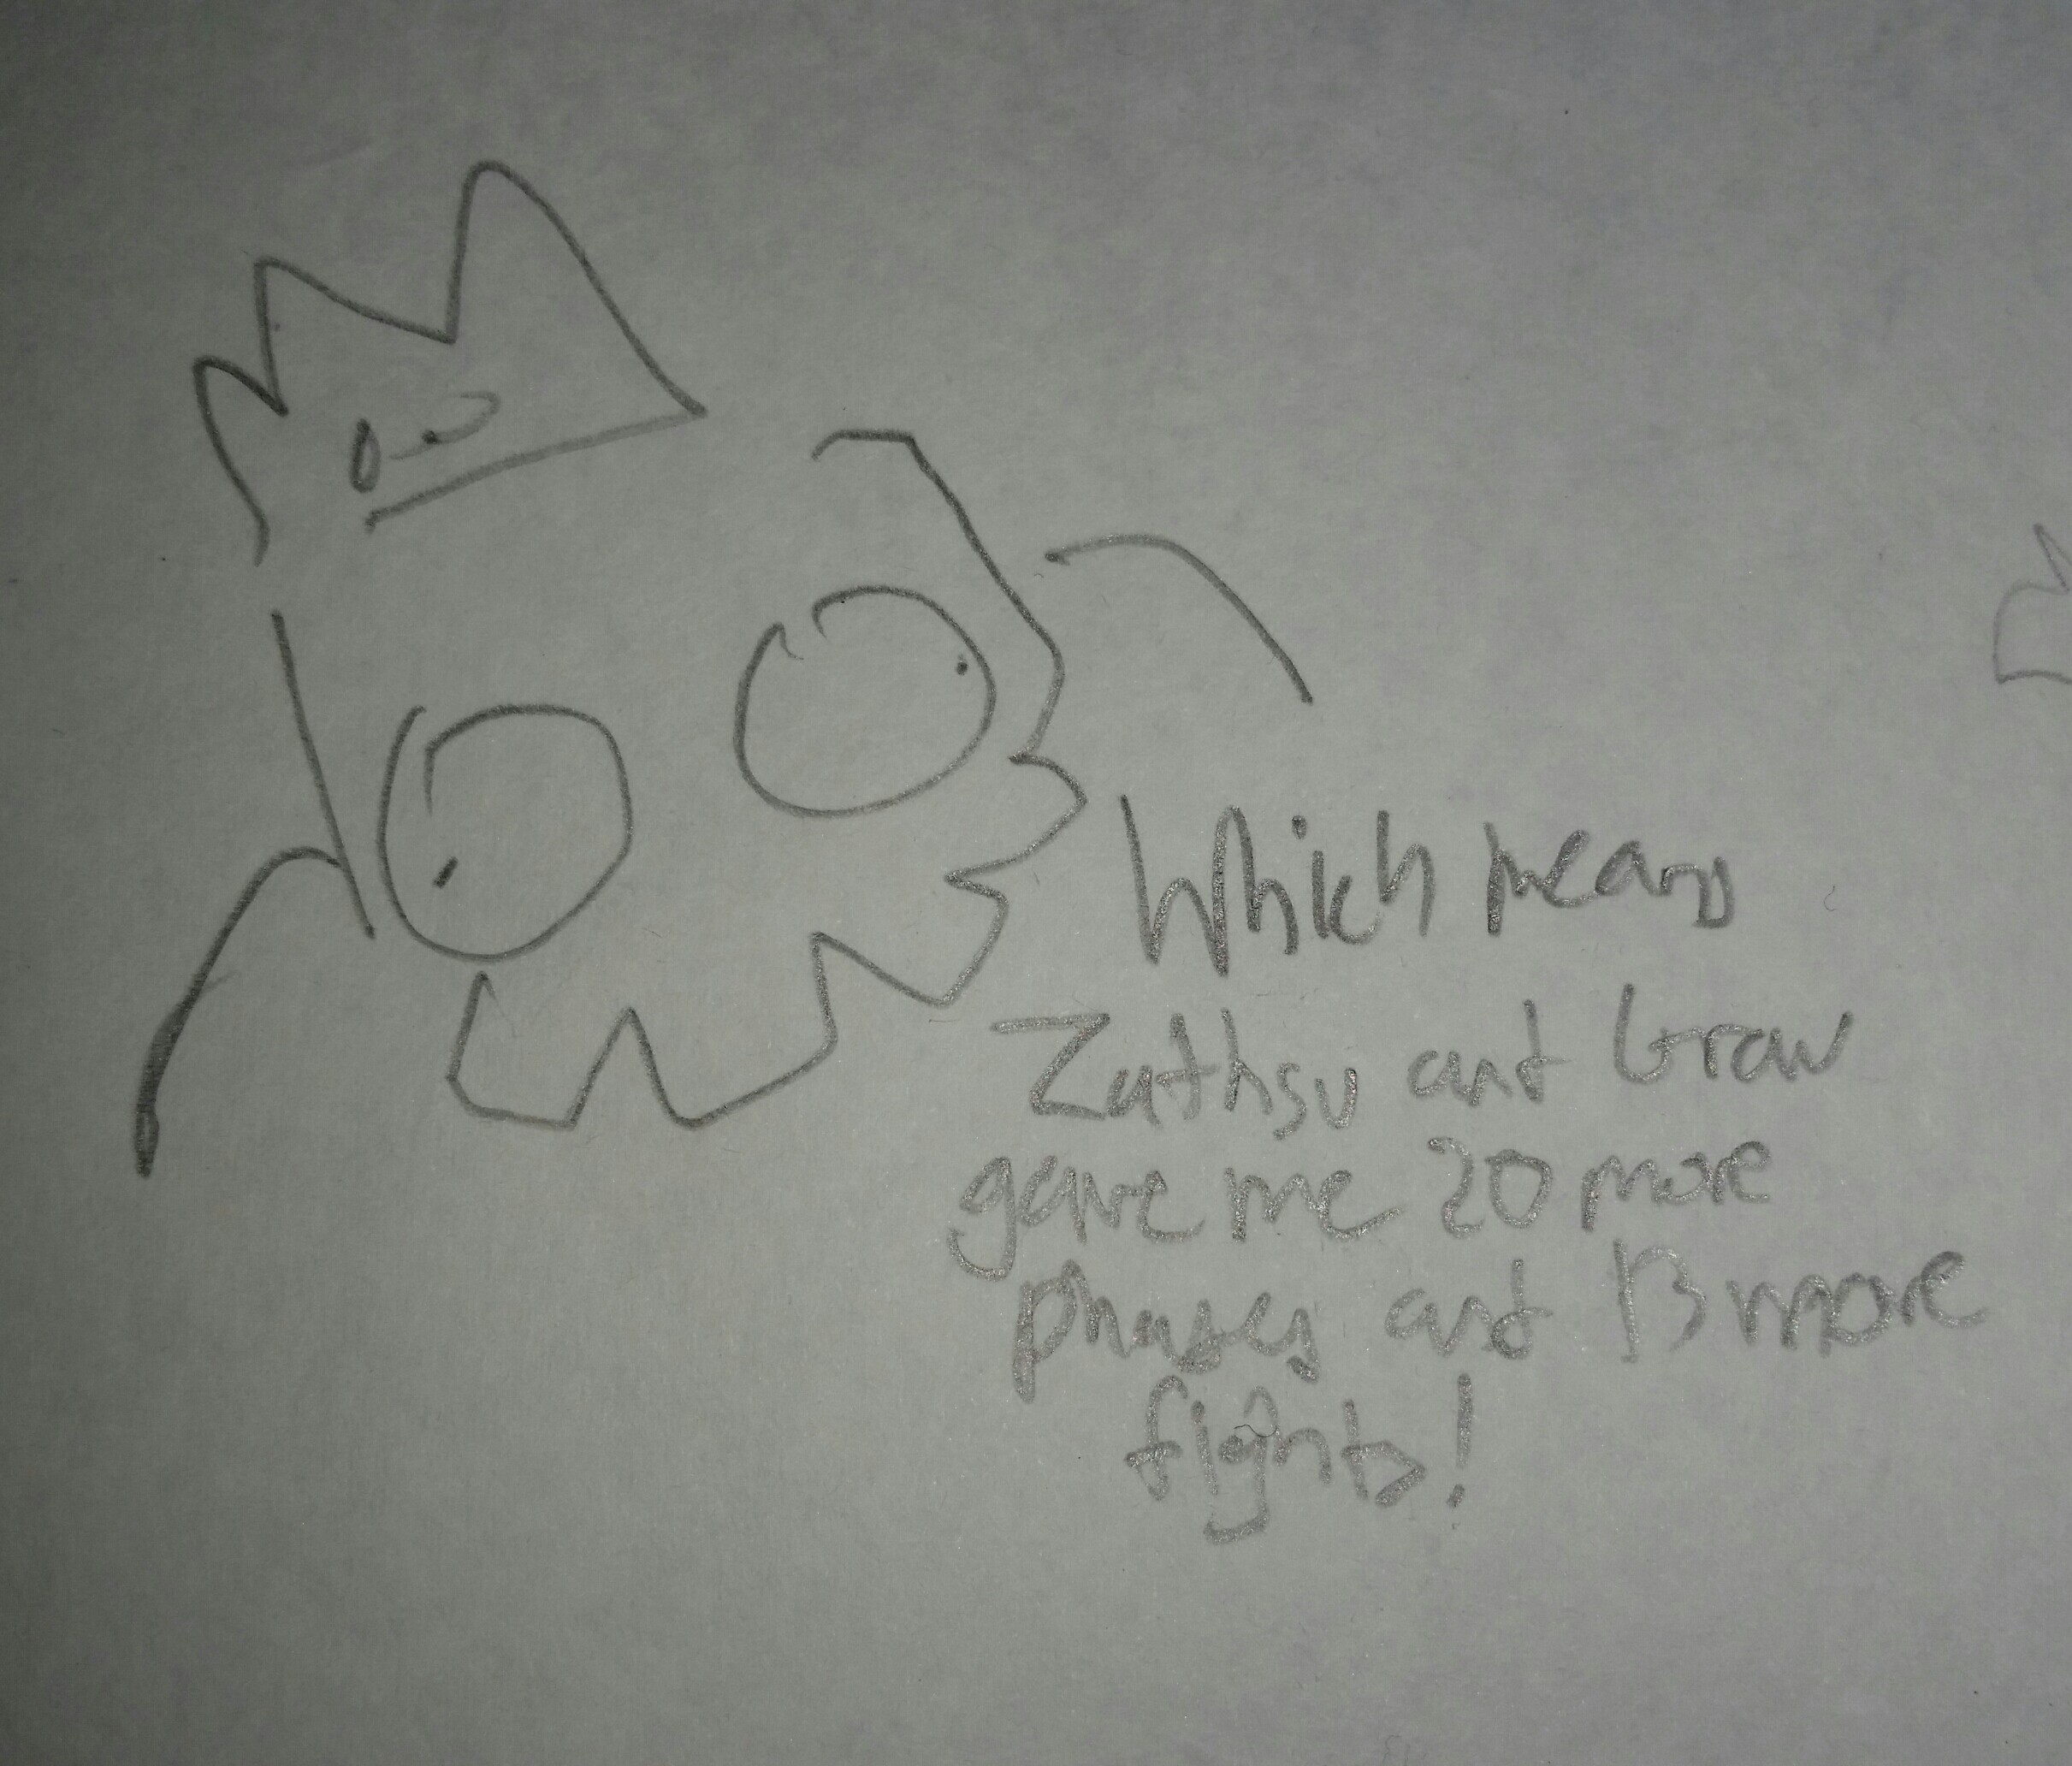 Which means
Zathsu and Graw
gave me 20 more
phases and 13 more
fights!